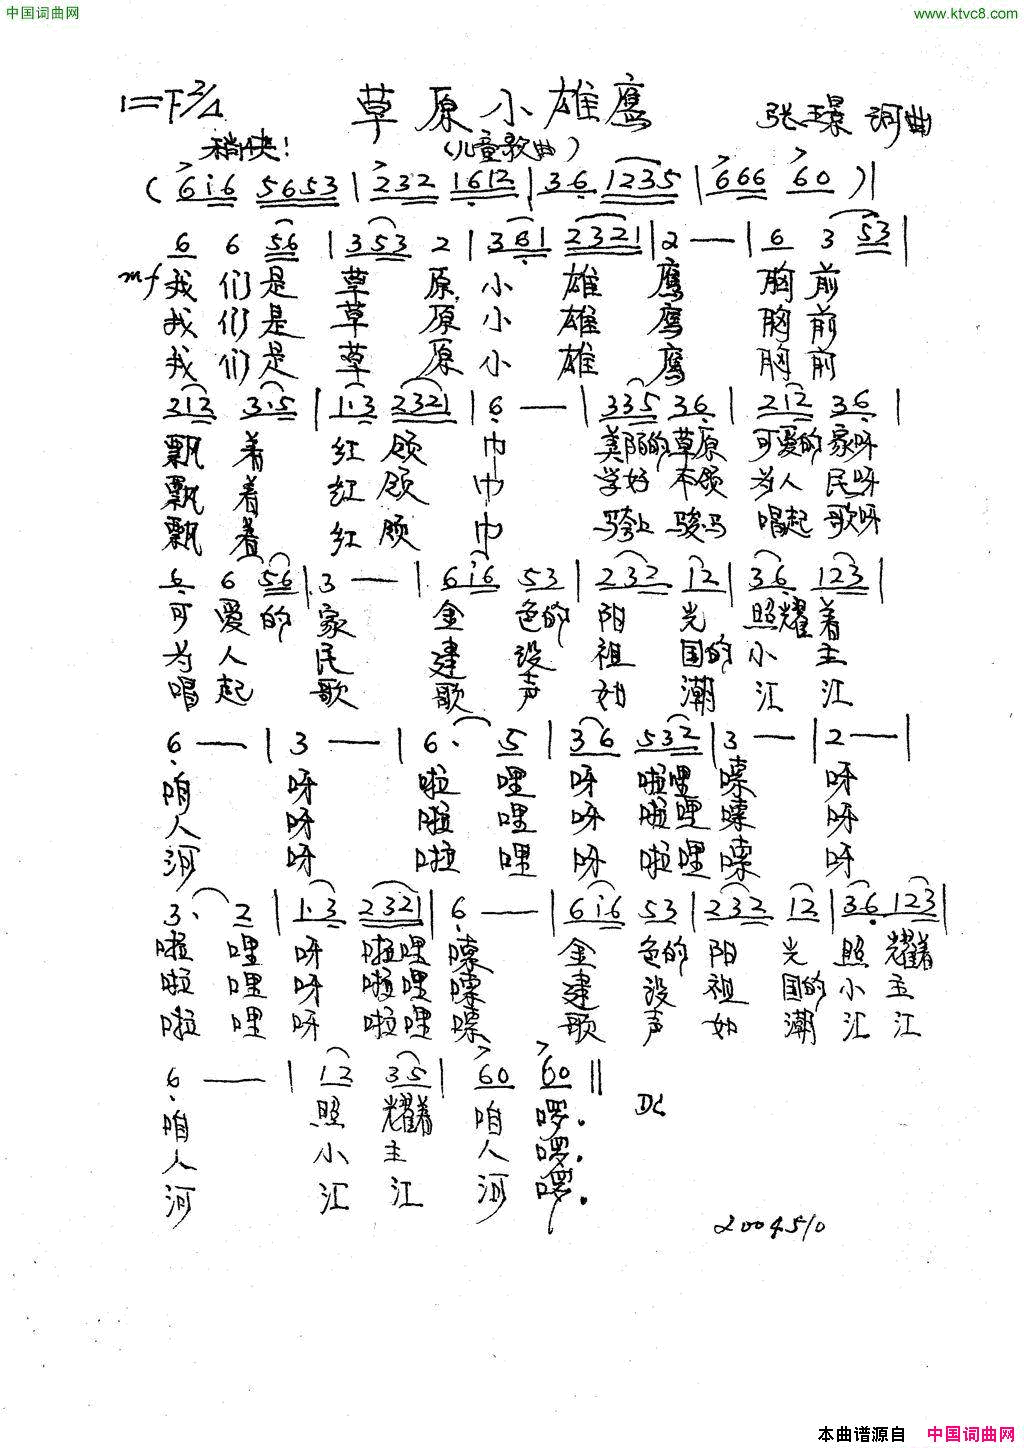 中国词曲网
www.ktvc8.com
1=F 2/4 草原小雄鹰 张璟 词曲
稍快! (儿童歌曲)
(6i6 5653 | 232 1612 | 36 1235 | 666 60 ) |
6 6 56 | 353 2 | 361 2321 | 2 — | 6 3 53 |
mf 我们是 草原 小雄鹰 胸前
我们是 草原 小雄鹰 胸前
我们是 草原 小雄鹰 胸前
212 3·5 | 1·3 2321 | 6 — | 335 36 | 212 36 |
飘着 红领巾 美丽的草原 可爱的家呀
飘着 红领巾 学好本领 为人民呀
飘着 红领巾 骑上骏马 唱起歌呀
6 6 56 | 3 — | 6i6 53 | 232 12 | 36 123 |
可爱的家 金色的阳光照耀着
为人民 建设祖国的小主
唱起歌 歌声如潮汇江
6 — | 3 — | 6· 5 | 36 532 | 3 — | 2 — |
咱 呀 啦哩呀啦哩嗦 呀
人 呀 啦哩呀啦哩嗦 呀
河 呀 啦哩呀啦哩嗦 呀
3· 2 | 1·3 2321 | 6 — | 6i6 53 | 232 12 | 36 123 |
啦哩呀啦哩嗦 金色的阳光照耀着
啦哩呀啦哩嗦 建设祖国的小主
啦哩呀啦哩嗦 歌声如潮汇江
6 — | 12 35 | 60 60 || DC
咱 照耀着咱啰.
人 小主人啰.
河 汇江河啰.
2004.5/0
本曲谱源自 中国词曲网